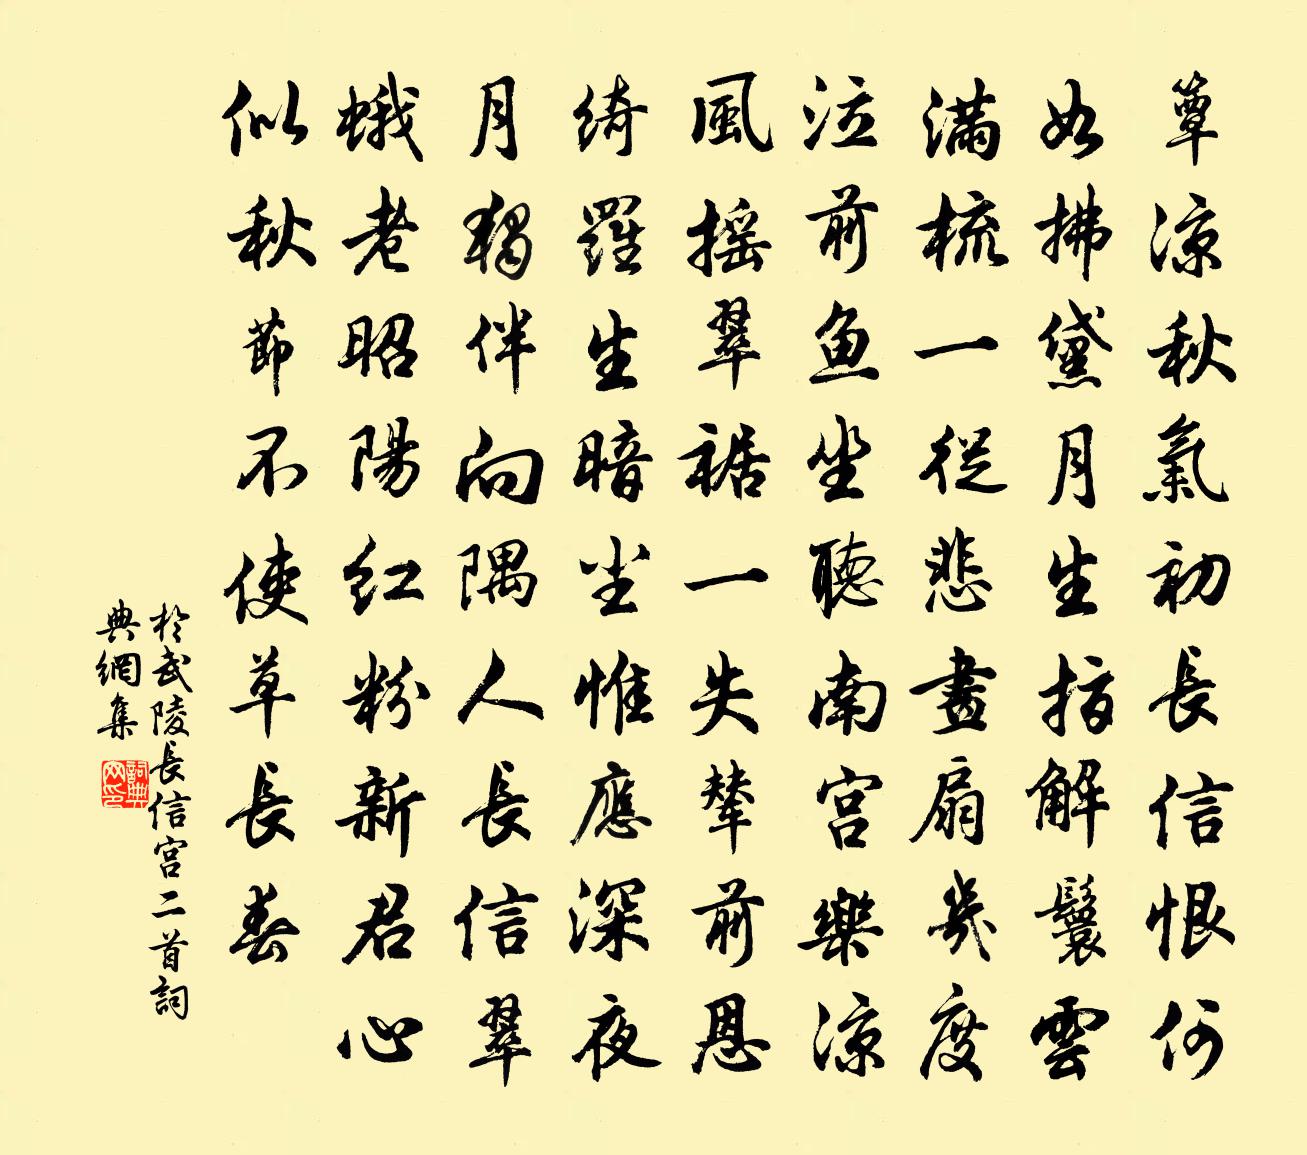 簟涼秋氣初長信恨何
如拂黛月生指解鬟雲
滿梳一從悲畫扇幾度
泣前魚坐聽南宮樂涼
風搖翠裾一失輦前恩
綺羅生暗尘惟應深夜
月獨伴向隅人長信翠
蛾老昭陽紅粉新君心
似秋節不使草長春
於武陵長信宮二首詞
典網集
詞典
网印